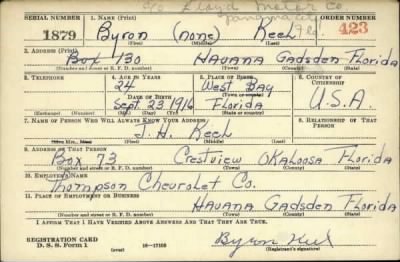 c/o Lloyd Motor Co.
Panama City
Fla.
SERIAL NUMBER 1. NAME (Print) ORDER NUMBER
1879 Byron (none) Keel 423
(First) (Middle) (Last)
2. ADDRESS (Print)
Box 130 Havana Gadsden Florida
(Number and street or R. F. D. number) (Town) (County) (State)
3. TELEPHONE 4. AGE IN YEARS 5. PLACE OF BIRTH 6. COUNTRY OF CITIZENSHIP
24 West Bay
DATE OF BIRTH (Town or county)
Sept 23 1916 Florida U.S.A.
(Exchange) (Number) (Mo.) (Day) (Yr.) (State or country)
7. NAME OF PERSON WHO WILL ALWAYS KNOW YOUR ADDRESS 8. RELATIONSHIP OF THAT PERSON
J. H. Keel
(Mr., Mrs., Miss) (First) (Middle) (Last)
9. ADDRESS OF THAT PERSON
Box 73 Crestview Okaloosa Florida
(Number and street or R. F. D. number) (Town) (County) (State)
10. EMPLOYER'S NAME
Thompson Chevrolet Co.
11. PLACE OF EMPLOYMENT OR BUSINESS
Havana Gadsden Florida
(Number and street or R. F. D. number) (Town) (County) (State)
I AFFIRM THAT I HAVE VERIFIED ABOVE ANSWERS AND THAT THEY ARE TRUE.
REGISTRATION CARD
D. S. S. Form 1 (over) 16-17105
Byron Keel
(Registrant's signature)